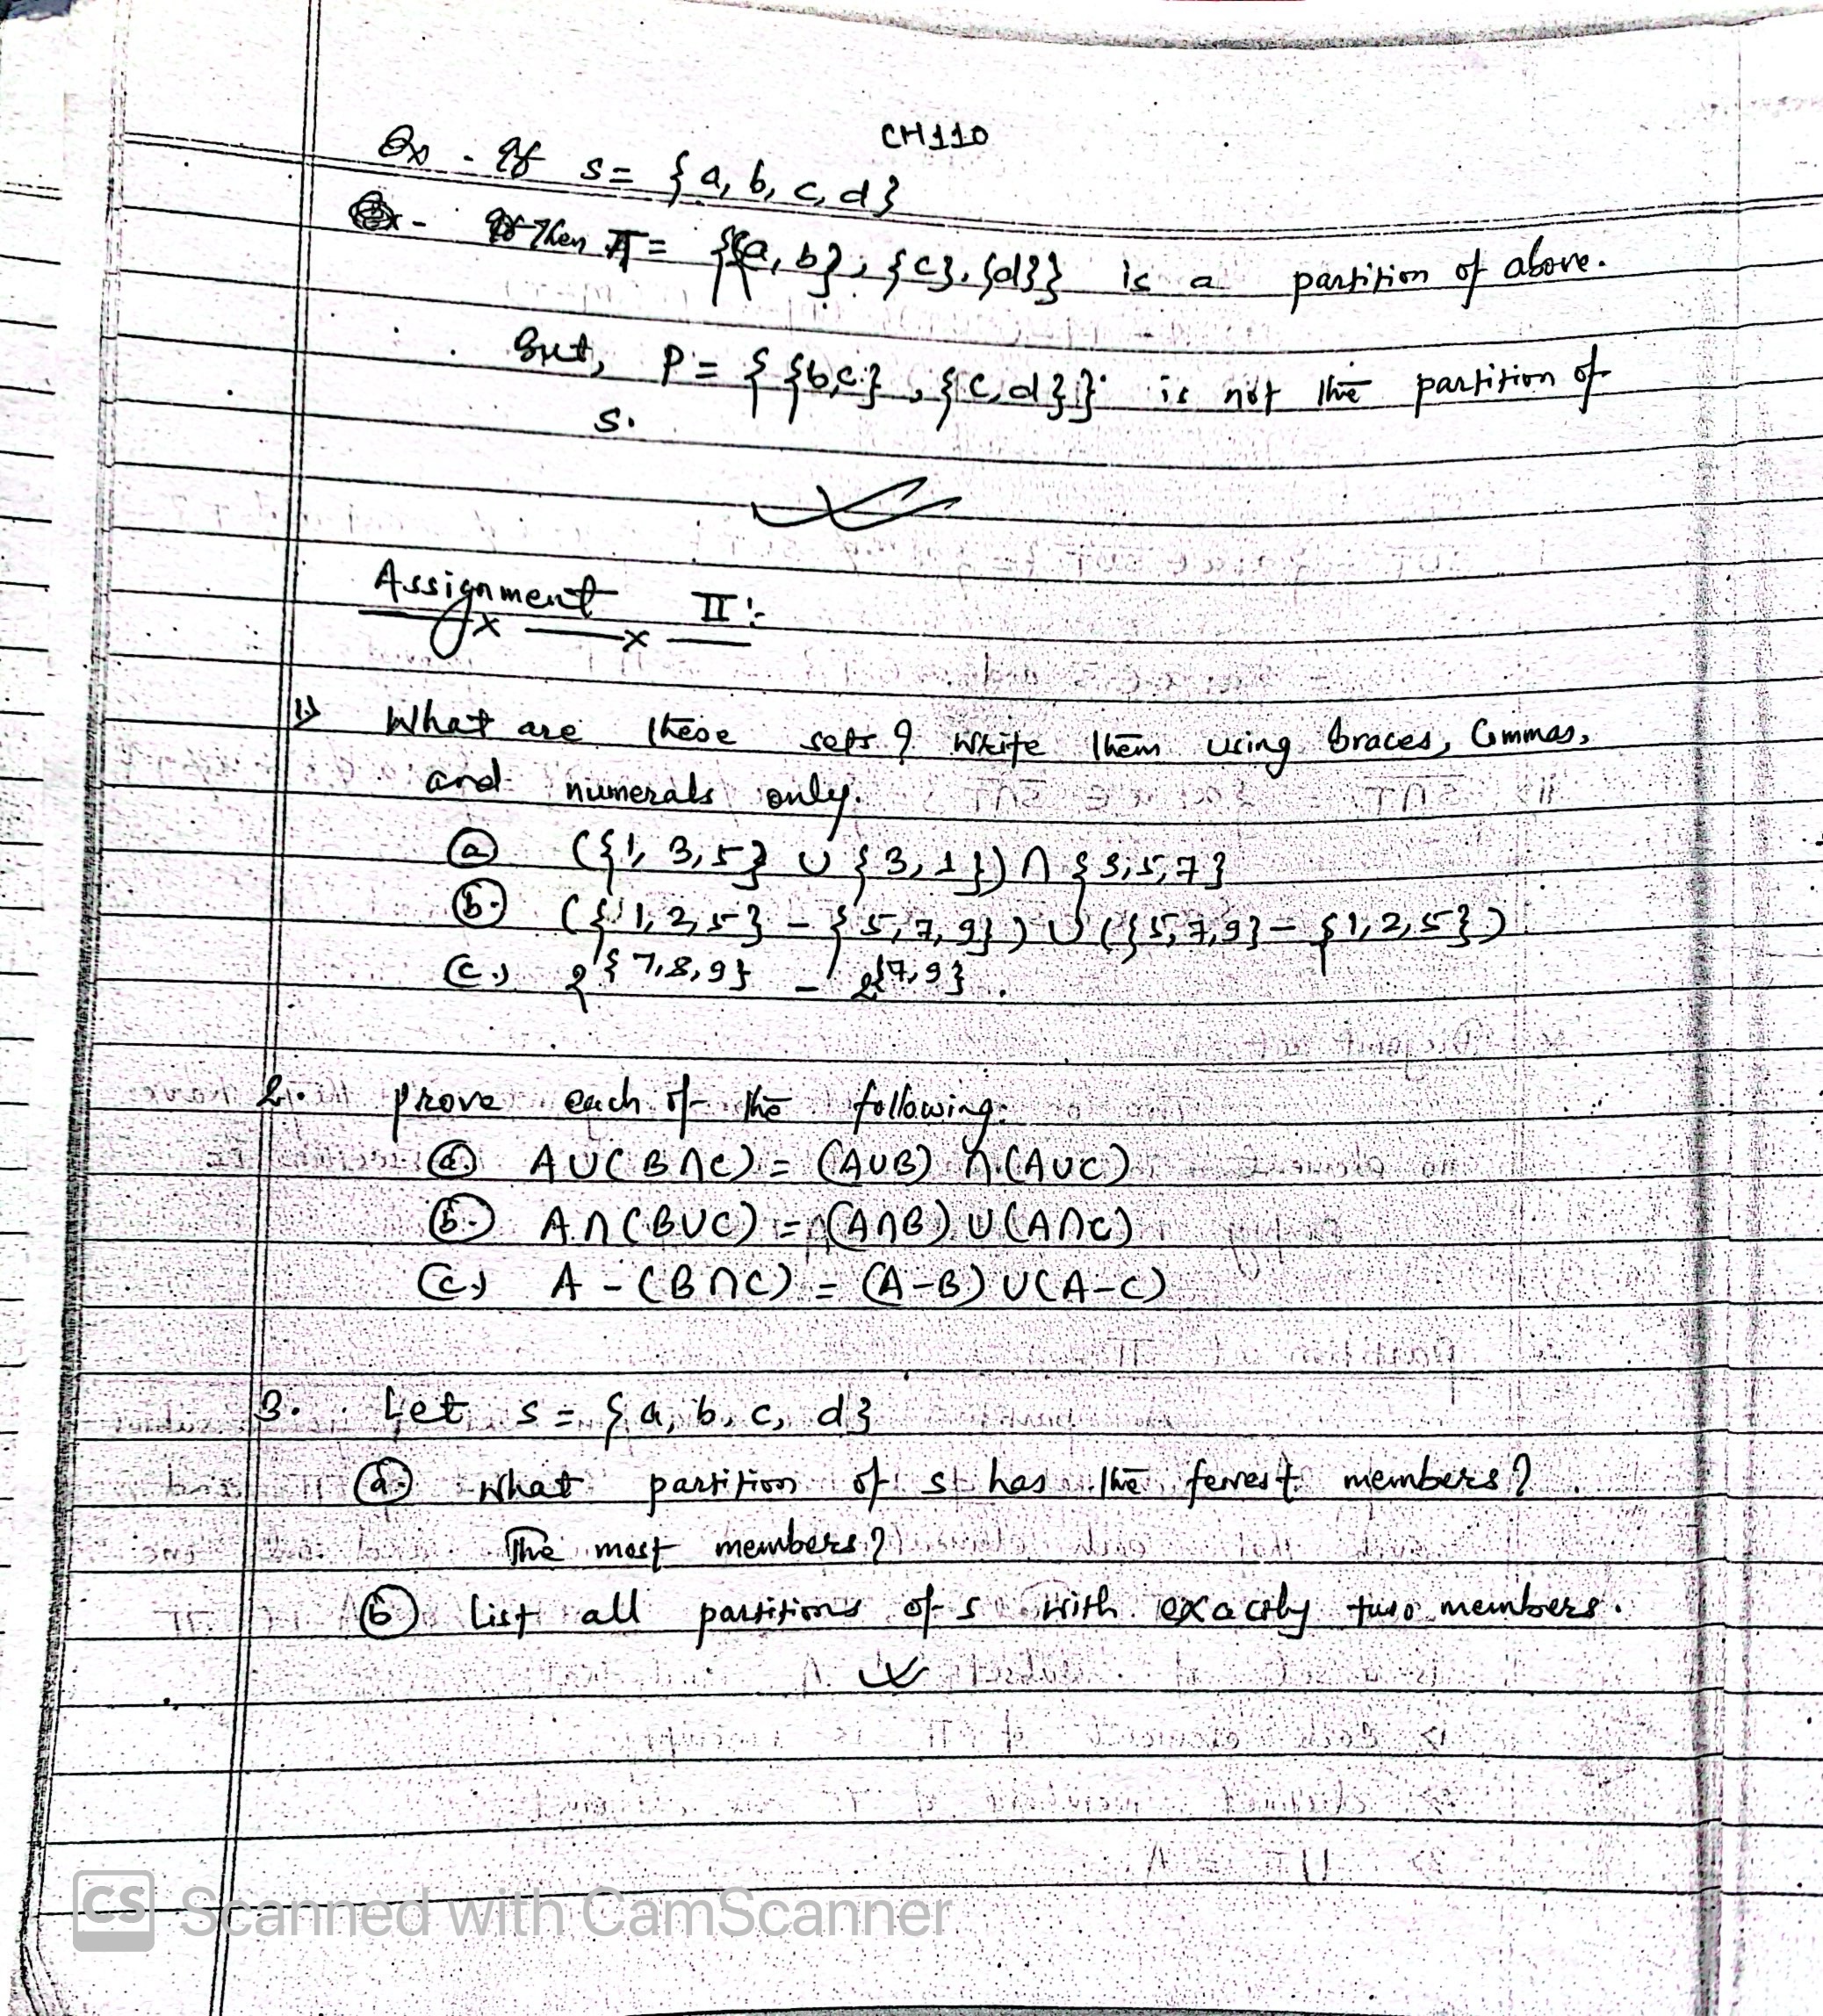 CH110
Ex - If S = {a, b, c, d}
Then π = {{a, b}, {c}, {d}} is a partition of above.
But, P = {{b,c}, {c,d}} is not the partition of
S.
Assignment II :-
1) What are these sets? Write them using braces, Commas,
and numerals only.
(a) ({1, 3, 5} ∪ {3, 1}) ∩ {3,5,7}
(b.) ({1, 2, 5} - {5, 7, 9}) ∪ ({5, 7, 9} - {1, 2, 5})
(c.) 2^{7,8,9} - 2^{7,9}.
2. Prove each of the following.
(a.) A∪(B∩C) = (A∪B) ∩ (A∪C)
(b.) A∩(B∪C) = (A∩B) ∪ (A∩C)
(c) A - (B∩C) = (A-B) ∪ (A-C)
3. Let S = {a, b, c, d}
(a.) What partition of S has the fewest members?
The most members?
(b) List all partitions of S with exactly two members.
CS Scanned with CamScanner